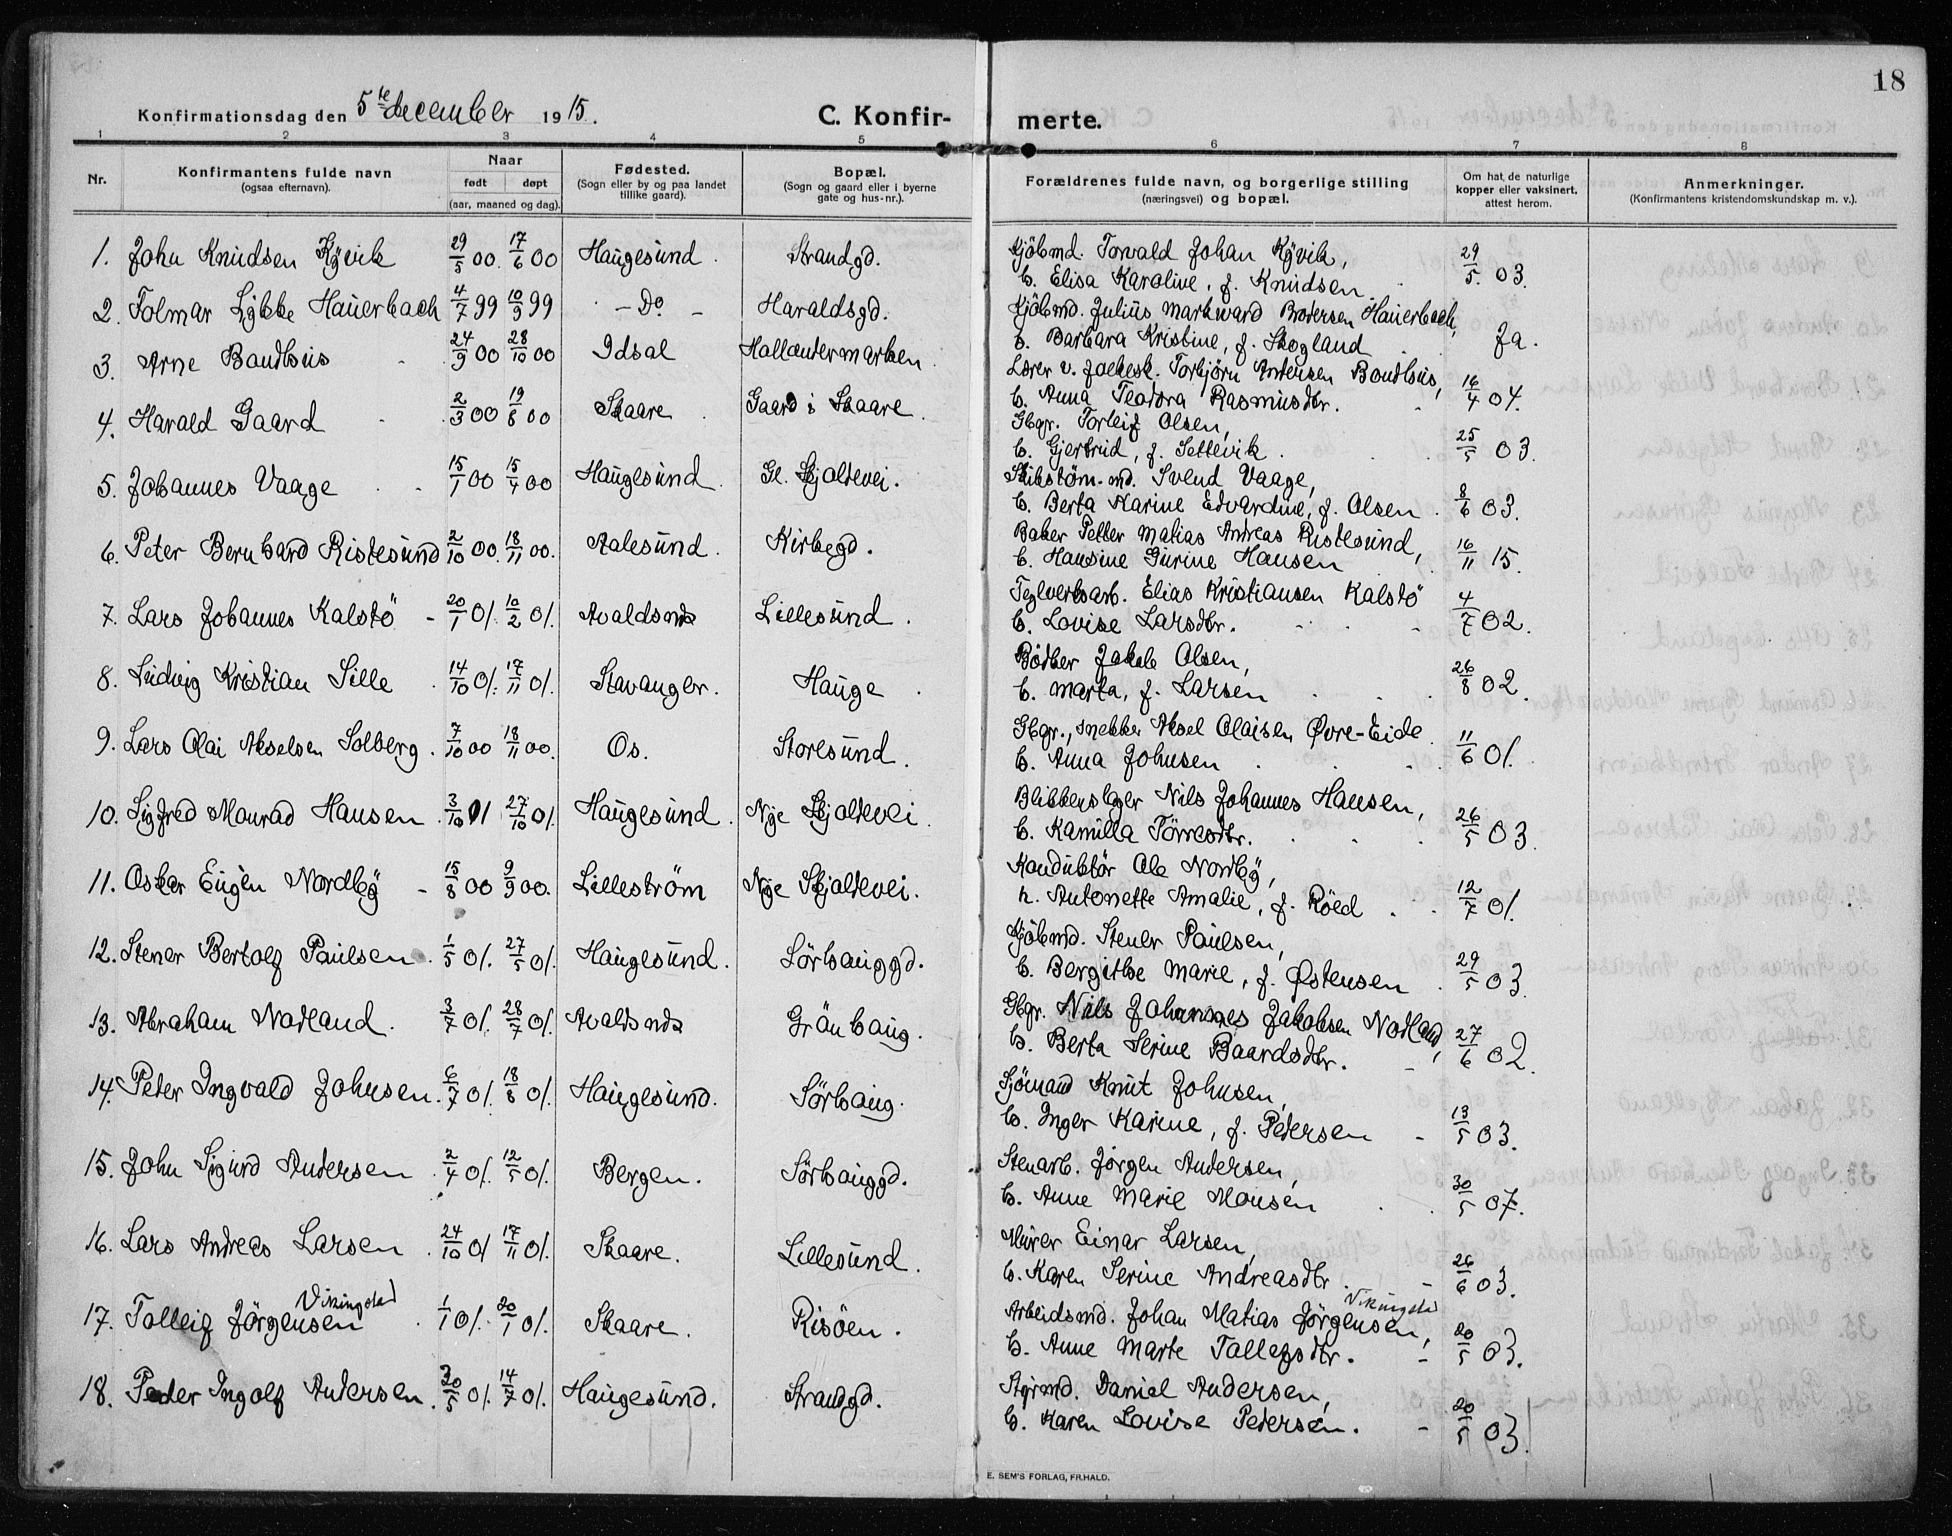 18
Konfirmationsdag den 5te december 1915.
C. Konfirmerte.
1 2 3 4 5 6 7 8
Nr.
Konfirmantens fulde navn
(ogsaa efternavn).
Naar
født døpt
(aar, maaned og dag).
Fødested.
(Sogn eller by og paa landet
tillike gaard).
Bopæl.
(Sogn og gaard eller i byerne
gate og hus-nr.).
Forældrenes fulde navn, og borgerlige stilling
(næringsvei) og bopæl.
Om hat de naturlige
kopper eller vaksinert,
attest herom.
Anmerkninger.
(Konfirmantens kristendomskundskap m. v.).
1. John Knudsen Kÿvik 29/5 00. 17/6 00 Haugesund. Strandgd. Kjöbmd. Torvald Johan Kÿvik, 29/5 03.
Elisa Karoline, f. Knudsen
2. Folmar Lykke Hauerbach 4/7 99 10/9 99 - Do - Haraldsgd. Kjöbmd. Julius Markward Brodersen Hauerbach, Ja.
Barbara Kristine, f. Skogland
3. Arne Baudlsus 24/9 00 28/10 00 Idsal Hollendermarken Lærer v. folkesk. Torbjörn Andersen 16/4 04.
Anna Teodora Rasmusdtr.
4. Harald Gaard 2/3 00 19/8 00 Skaare Gaard i Skaare. Gbgr. Torleif Olsen, 25/5 03.
Gjertrud, f. Settevik
5. Johannes Vaage 15/1 00 15/4 00 Haugesund. Gl. Skjoldevei. Svend Vaage, 8/6 03.
Berta Karine Edvardine, f. Olsen.
6. Peter Bernhard Ristesund 2/10 00. 18/11 00. Aalesund. Kirkegd. Baker Petter Matias Andreas Ristesund, 16/11 15.
Hansine Gurine Hansen
7. Lars Johannes Kalstö 20/1 01. 10/2 01. Avaldsnes Lillesund. Teglverksarb. Elias Kristiansen Kalstö 4/7 02.
Lovise Larsdtr.
8. Ludvig Kristian Lille 14/10 01. 17/11 01. Stavanger. Hauge Bödker Jakob Olsen, 26/8 02.
Marta, f. Larsen
9. Lars Olai Akselsen Solberg. 7/10 00 18/11 00. Os. Storesund. Gbgr., snekker Aksel Olaisen Øvre-Eide. 11/6 01.
Anna Johnsen
10. Sigfred Monrad Hansen 3/10 01 27/10 01. Haugesund. Nye Skjoldevei. Blikkenslager Nils Johannes Hansen, 26/5 03.
Kamilla Törresdtr.
11. Oskar Eugen Nordbÿ 15/8 00 9/9 00. Lilleström Nye Skjoldevei. Konduktör Ole Nordbÿ, 12/7 01.
h. Antonette Amalie, f. Röed
12. Stener Bertolf Paulsen 1/5 01. 27/5 01. Haugesund. Sörhauggd. Kjöbmd. Stener Paulsen, 29/5 03.
Bergithe Marie, f. Østensen
13. Abraham Nodland. 3/7 01. 28/7 01. Avaldsnes Grönhaug. Gbgr. Nils Johannes Jakobsen Nodland, 27/6 02.
Berta Serine Baardsdtr.
14. Peter Ingvald Johnsen. 6/7 01. 18/8 01. Haugesund. Sörhaug. Sjömand Knut Johnsen, 13/5 03.
Inger Karine, f. Pedersen
15. John Sigurd Andersen 2/4 01. 12/5 01. Bergen. Sörhauggd. Stenarb. Jörgen Andersen, 30/5 07.
Anne Marie Monsen
16. Lars Andreas Larsen 24/10 01 17/11 01. Skaare. Lillesund. Murer Einar Larsen, 26/6 03.
Karen Serine Andreasdtr.
17. Tolleif Jörgensen Vikingstad 1/1 01. 20/1 01. Skaare. Risöen. Arbeidsmd. Johan Matias Jörgensen, Vikingstad 20/5 03.
Anne Marte Tollefsdtr.
18. Peder Ingolf Andersen. 20/5 01. 14/7 01. Haugesund. Strandgd. Styrmd. Daniel Andersen, 20/5 03.
Karen Lovise Pedersen.
E. SEM'S FORLAG, FR.HALD.